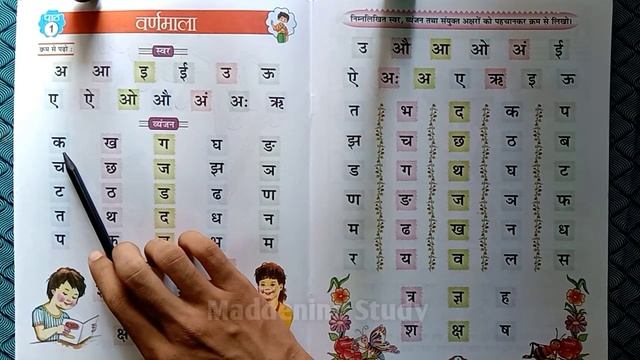 पाठ 1 वर्णमाला
क्रम से पढ़ो :
स्वर
अ आ इ ई उ ऊ
ए ऐ ओ औ अं अः ऋ
व्यंजन
क ख ग घ ङ
च छ ज झ ञ
ट ठ ड ढ ण
त थ द ध न
प भ म
क्ष
निम्नलिखित स्वर, व्यंजन तथा संयुक्त अक्षरों को पहचानकर क्रम से लिखो।
उ औ आ ओ अं ई
ऐ अः अ ए ऋ इ ऊ
त भ द क प
झ च छ ठ ब
ड ग थ घ ट
ण ङ ज ञ फ
म ढ ख न ध
र य व ल स
त्र ज्ञ ह
श क्ष ष
Maddening Study